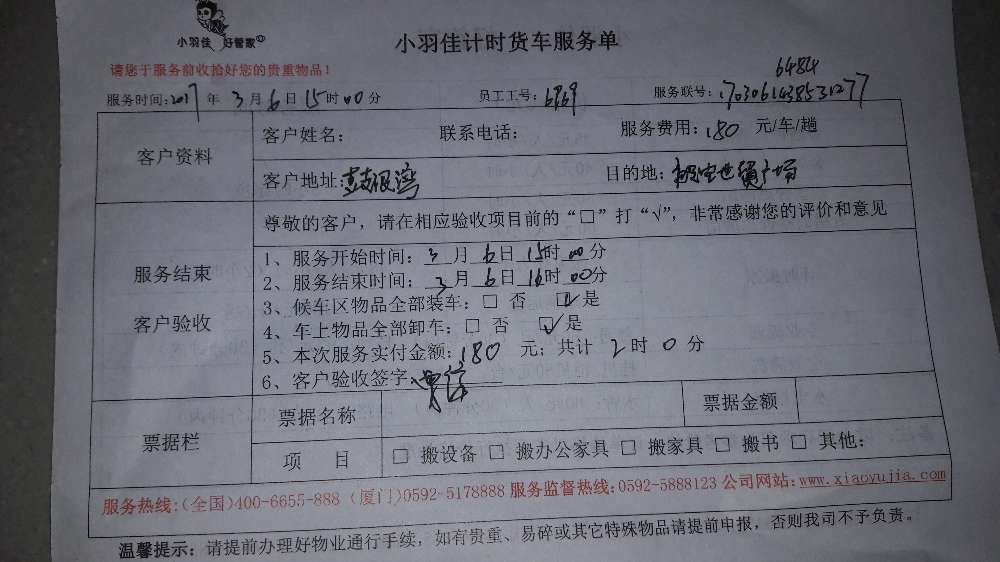 小羽佳 好管家
小羽佳计时货车服务单
请您于服务前收拾好您的贵重物品！
6484
服务时间:2017年 3月6日15时00分 员工工号: 6969 服务联号: 1703061438531277
客户资料
客户姓名: 联系电话: 服务费用: 180 元/车/趟
客户地址: 目的地: 世贸广场
服务结束
客户验收
尊敬的客户，请在相应验收项目前的“□”打“√”，非常感谢您的评价和意见
1、服务开始时间: 3月6日15时00分
2、服务结束时间: 3月6日16时00分
3、候车区物品全部装车: □ 否 ☑是
4、车上物品全部卸车: □ 否 ☑是
5、本次服务实付金额: 180 元; 共计 2时0分
6、客户验收签字:
票据栏
票据名称 票据金额
项 目 □ 搬设备 □ 搬办公家具 □ 搬家具 □ 搬书 □ 其他:
服务热线:(全国)400-6655-888 (厦门)0592-5178888 服务监督热线:0592-5888123 公司网站:www.xiaoyujia.com
温馨提示: 请提前办理好物业通行手续，如有贵重、易碎或其它特殊物品请提前申报，否则我司不予负责。